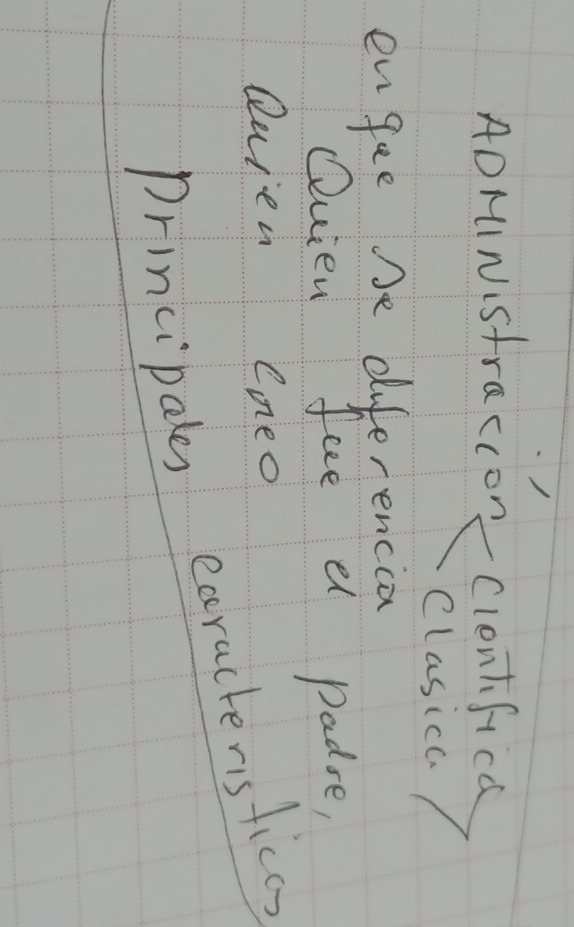 ADMINIstración < Cientifica
Clasica
en que se diferencia
Quien fue el padre,
Quien Creo
Principales caracteristicas